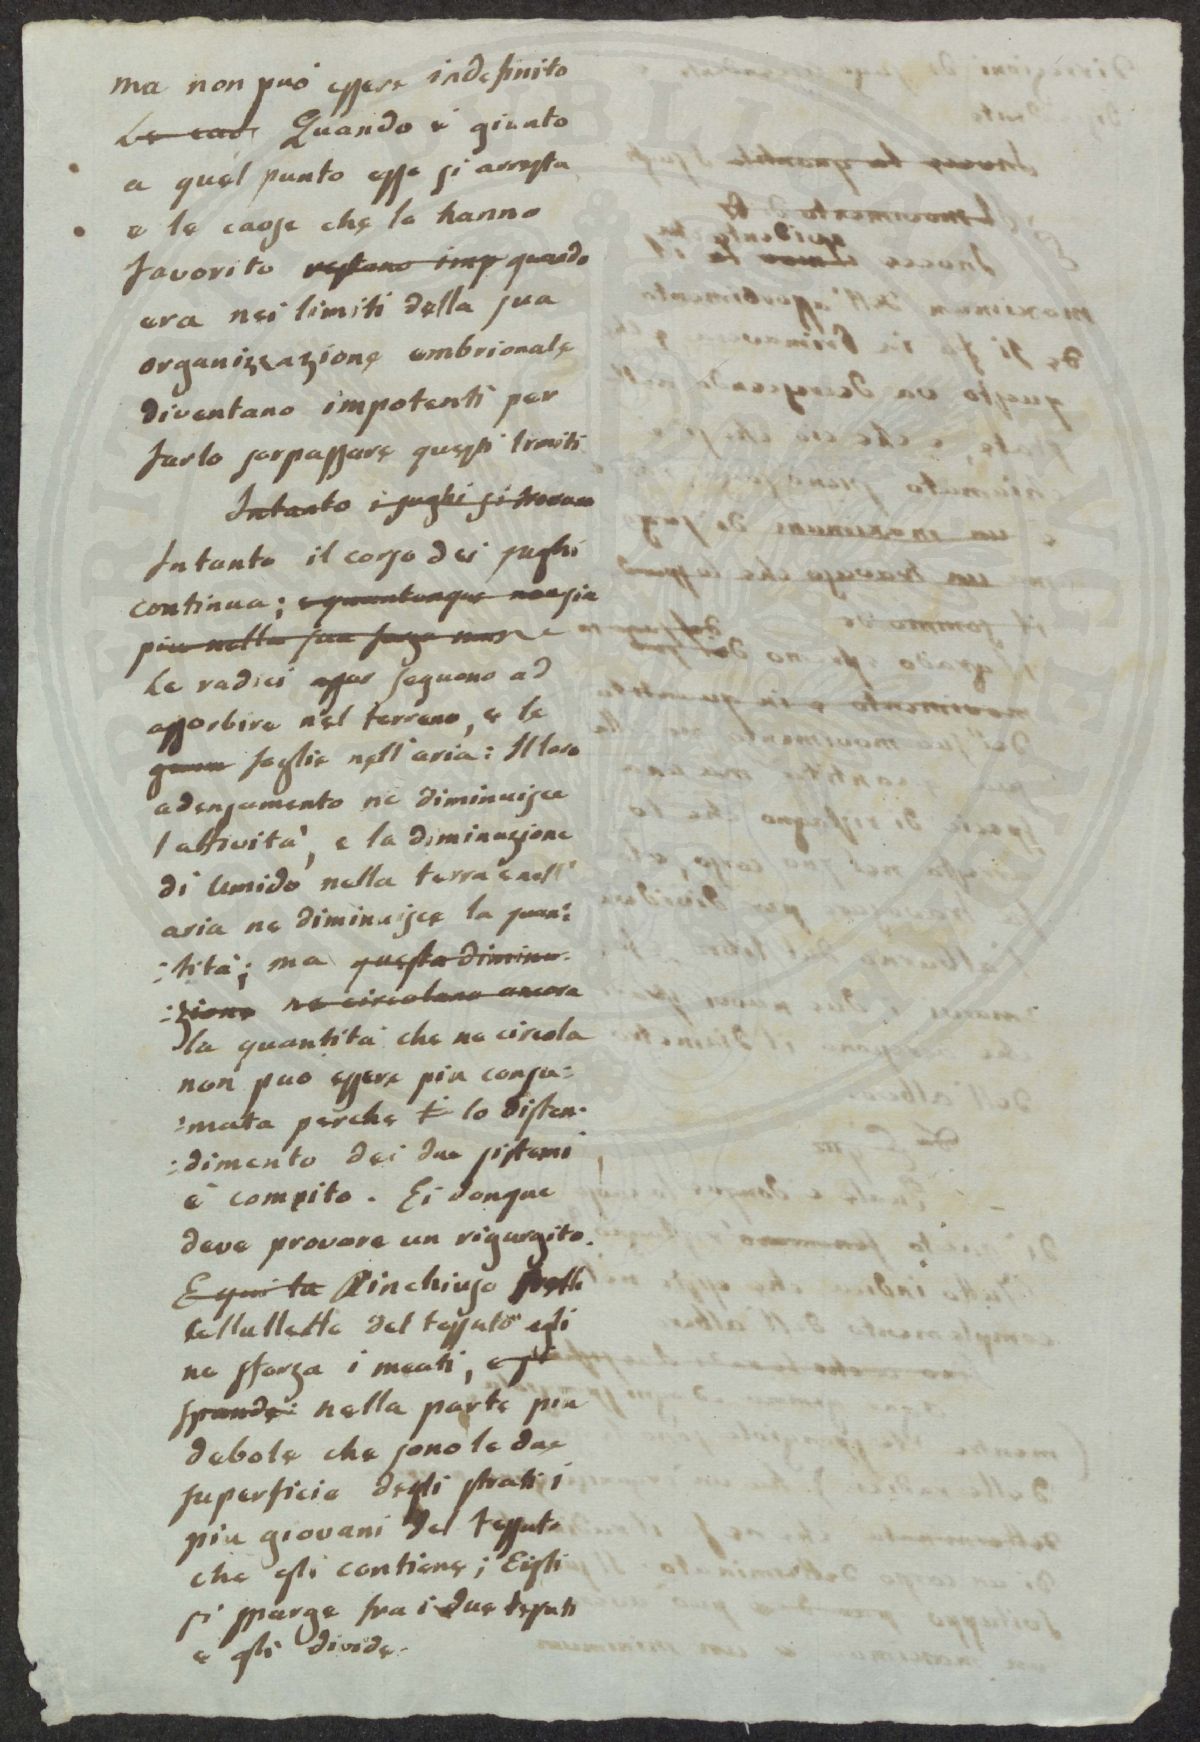 ma non può essere indefinito
Le cau Quando è giunto
a quel punto esse si arresta
e le cause che lo hanno
favorito restano imp quando
era nei limiti della sua
organizzazione embrionale
diventano impotenti per
farlo sorpassare questi limiti
Intanto i sughi si trovano
Intanto il corso dei sughi
continua; e quantunque non sia
piu nella sua forza
Le radici seguono ad
assorbire nel terreno, e le
foglie nell'aria: Il loro
adensamento ne diminuisce
l attività, e la diminuzione
di Umido nella terra e nell'
aria ne diminuisce la quan:
:tità; ma questa diminu:
:zione ne circolano ancora
la quantità che ne circola
non può essere piu consu:
:mata perche lo disten:
:dimento dei due sistemi
è compito. Ei donque
deve provare un rigurgito.
E qui ta Rinchiuso nelle
cellullette del tessuto egli
ne sforza i meati, e si
spande: nella parte piu
debole che sono le due
superficie degli strati i
piu giovani del tessuto
che gli contiene; Eigli
si sparge fra i due tessuti
e gli divide.